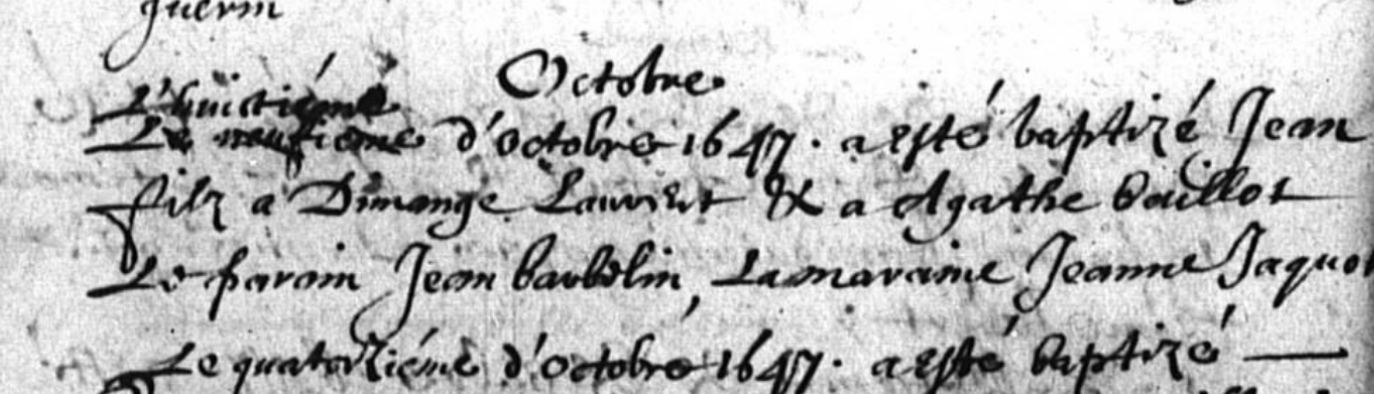 guerin
Octobre
L'huictiéme
Le neufieme d'octobre 1647. a esté baptizé Jean
filz a Dimange Laurent & a Agathe baillot
Le parain Jean barbelin, La maraine Jeanne Jaquot
Le quatorziéme d'octobre 1647. a esté baptizé